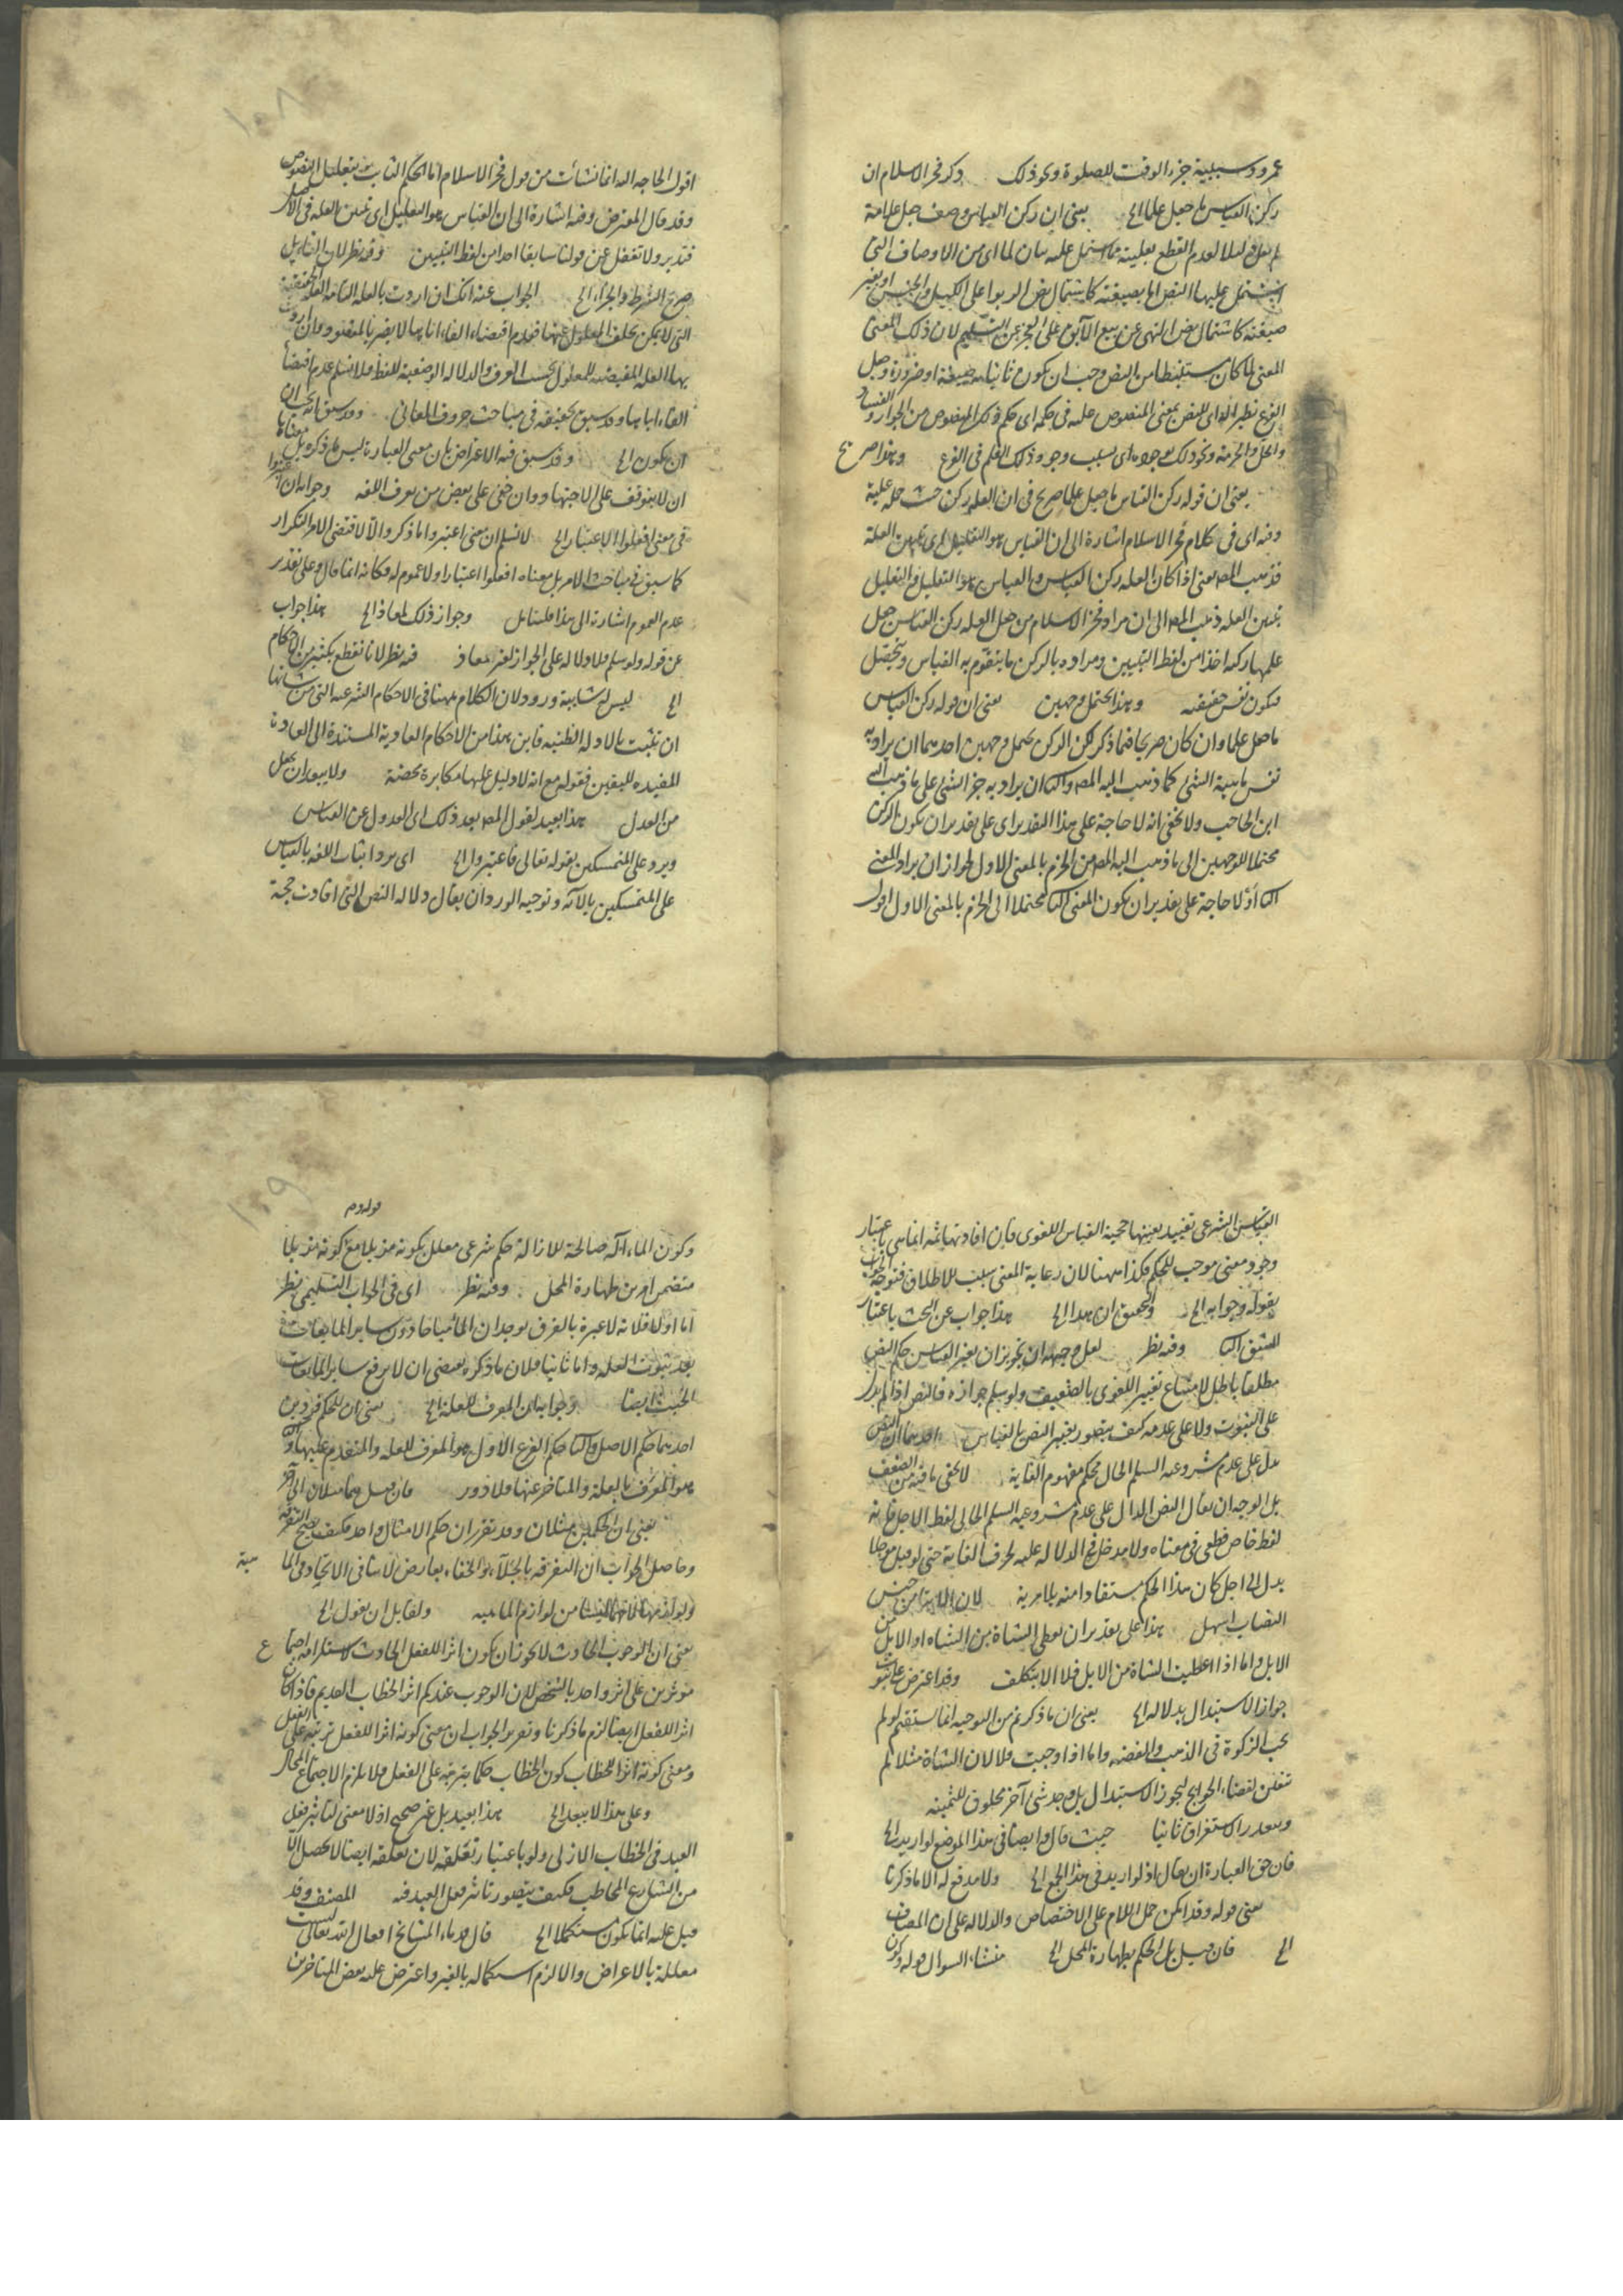 عمرو وسببية جزء الوقت للصلوة ونحو ذلك ذكر فخر الاسلام ان
ركن القياس ما جعل علما الخ يعني ان ركن القياس وصف جعل علامة
لعدم القطع بعليته مما اشتمل عليه بيان لما اى من الاوصاف التى
يشتمل عليها النص اما بصيغته كاشتمال نص الربوا على الكيل والجنس او بغير
صيغته كاشتمال نص النهى عن بيع الآبق على العجز عن التسليم لان ذلك المعنى
المعنى لما كان مستنبطا من النص وجب ان يكون ثابتا به صيغة او ضرورة وجعل
الفرع نظيرا له اى للنص بمعنى المنصوص عليه فى حكمه اى حكم ذلك المنصوص من الجواز والفساد
والحل والحرمة ونحو ذلك بوجوده اى بسبب وجود ذلك العلم فى الفرع وهذا صريح
يعنى ان قوله ركن القياس ما جعل علما صريح فى ان العلة ركن حيث حمله عليه
وفيه اى فى كلام فخر الاسلام اشارة الى ان القياس هو التعليل اى تبيين العلة
فذهب المص يعنى اذا كان العلة ركن القياس والقياس هو التعليل والتعليل
تبيين العلة ذهب المص الى ان مراد فخر الاسلام من جعل العلة ركن القياس جعل
علمها ركنه اخذا من لفظ التبيين ومراده بالركن ما يتقوم به القياس ويتحصل
فيكون نفس حقيقته وهذا يحتمل وجهين يعنى ان قوله ركن القياس
ما جعل علما وان كان صريحا فيما ذكر لكن الركن يحتمل وجهين احدهما ان يراد به
نفس ماهية الشئ كما ذهب اليه المص والثانى ان يراد به جزء الشئ على ما ذهب اليه
ابن الحاجب ولا يخفى انه لا حاجة على هذا التقدير اى على تقدير ان يكون الركن
محتملا للوجهين الى ما ذهب اليه المص من الجزم بالمعنى الاول لجواز ان يراد المعنى
الثانى اذ لا حاجة على تقدير ان يكون المعنى الثانى محتملا الى الجزم بالمعنى الاول اقول
اقول الحاجة اليه انما نشأت من قول فخر الاسلام اما الحكم الثابت بتعليل النصوص
وقد قال المعترض وفيه اشارة الى ان القياس هو التعليل اى تبيين العلة فى الاصل
فتدبر ولا تغفل عن قولنا سابقا اخذا من لفظ التبيين وفيه نظر لان
صريح الشرط والجزاء الخ الجواب عنه انك ان اردت بالعلة التامة العلة الحقيقية
التى لا يمكن تخلف المعلول عنها فعدم اقتضاء الفاء اياها لا يضر بالمقصود وان اردت
بها العلة المقتضية للمعلول بحسب العرف والدلالة الوضعية للفظ فلا نسلم عدم اقتضاء
الفاء اياها وقد سبق تحقيقه فى مباحث حروف المعانى وقد سبق انه يجب ان
ان يكون الخ وقد سبق فيه الاعتراض بان معنى العبارة ليس ما ذكره بل معناها
ان لا يتوقف على الاجتهاد وان خفى على بعض من يعرف اللغة وجوابه ان اعتبروا
فى معنى افعلوا الاعتبار الخ لا نسلم ان معنى اعتبروا ما ذكر والا لاقتضى الامر التكرار
كما سبق فى مباحث الامر بل معناه افعلوا اعتبارا ولا عموم له فكانه انما قال وعلى تقدير
عدم العموم اشارة الى هذا فليتامل وجواز ذلك لمعاذ الخ هذا جواب
عن قوله ولو سلم فلا دلالة على الجواز لغير معاذ فيه نظر لانا نقطع بكثير من الاحكام
الخ ليس له شائبة ورود لان الكلام ههنا فى الاحكام الشرعية التى من شانها
ان تثبت بالادلة الظنية فاين هذا من الاحكام العادية المستندة الى العادة
المفيدة لليقين فقوله مع انه لا دليل عليها مكابرة محضة ولا يبعد ان يجعل
من العدل هذا بعيد لقول المص بعد ذلك اى العدول عن القياس
ويرد على المتمسكين بقوله تعالى فاعتبروا الخ اى يرد اثبات اللغة بالقياس
على المتمسكين بالآية وتوجيه الورود ان يقال دلالة النص التى افادت حجية
القياس الشرعى تفيد بعينها حجية القياس اللغوى فان افادتها ثمة انما هى باعتبار
وجود معنى موجب للحكم فكذا ههنا لان رعاية المعنى سبب للاطلاق فتوجه الجواب
بقوله وجوابه الخ والتحقيق ان هذا الخ هذا جواب عن البحث باعتبار
الشق الثانى وفيه نظر لعل وجهه ان تجويز ان يغير القياس حكم النص
مطلقا باطل لامتناع تغيير القوى بالضعيف ولو سلم جوازه فالنص اذا لم يدل
على الثبوت ولا على عدمه كيف يتصور تغيير النص بالقياس احدهما ان النص
يدل على عدم مشروعية السلم الحال بحكم مفهوم الغاية لا يخفى ما فيه من الضعف
بل الوجه ان يقال النص الدال على عدم مشروعية السلم الحال لفظ الاجل فانه
لفظ خاص قطعى فى معناه ولا مدخل فى الدلالة عليه لحرف الغاية حتى لو قيل مؤجلا
بدل الى اجل كان هذا الحكم مستفادا منه بلا مرية لان الايتاء من جنس
النصاب اسهل هذا على تقدير ان يعطى الشاة من الشاة او الابل من
الابل واما اذا اعطيت الشاة من الابل فلا الا بتكلف وقد اعترض على ثبوت
جواز الاستبدال بدلالة الخ يعنى ان ما ذكرتم من التوجيه انما يستقيم لو لم
يجب الزكوة فى الذهب والفضة واما اذا وجبت فلا لان الشاة مثلا لم
تتعين لقضاء الحوائج ليجوز الاستبدال بل وجد شئ آخر مخلوق للثمنية
وتعذر الاستغراق ثانيا حيث قال وايضا فى هذا الموضع لو اريد الخ
فان حق العبارة ان يقال اذ لو اريد فى هذا الجمع الخ ولا مدفع له الا ما ذكرنا
يعنى قوله وقد امكن حمل اللام على الاختصاص والدلالة على ان المصارف
الخ فان قيل بل الحكم بطهارة المحل الخ منشاء السؤال قوله وكون
قوله وم
وكون الماء آلة صالحة للازالة حكم شرعى معلل بكونه مزيلا مع كونه مزيلا
متضمن امرين طهارة المحل وفيه نظر اى فى الجواب التسليمى نظر
اما اولا فلانه لا عبرة بالفرق بوجدان الماء مباحا دون سائر المايعات
بعد ثبوت العلة واما ثانيا فلان ما ذكره يقتضى ان لا يرفع سائر المايعات
الخبث ايضا وجوابه ان المعرف للعلة الخ يعنى ان للحكم فردين
احدهما حكم الاصل والثانى حكم الفرع الاول هو المعرف للعلة والمتقدم عليها
هو المعرف بالعلة والمتاخر عنها فلا دور فان قيل هما مثلان الى آخره
يعنى ان الحكمين مثلان وقد تقرر ان حكم الامثال واحد فكيف يصح التفرقة
وحاصل الجواب ان التفرقة بالجلاء والخفاء بعارض لا ينافى الاتحاد فى الماهية
ولوازمها لانهما ليسا من لوازم الماهية ولقائل ان يقول الخ
يعنى ان الوجوب الحادث لا يجوز ان يكون اثرا للفعل الحادث لاستلزامه اجتماع
مؤثرين على اثر واحد بالشخص لان الوجوب عندكم اثر الخطاب القديم فاذا كان
اثرا للفعل ايضا لزم ما ذكرنا وتقرير الجواب ان معنى كونه اثرا للفعل ترتبه على الفعل
ومعنى كونه اثرا للخطاب كون الخطاب حكما بترتبه على الفعل فلا يلزم الاجتماع المحال
وعلى هذا لا يبعد الخ هذا بعيد بل غير صحيح اذ لا معنى لتاثير فعل
العبد فى الخطاب الازلى ولو باعتبار تعلقه لان تعلقه ايضا لا يحصل الا
من الشارع المخاطب فكيف يتصور تاثير فعل العبد فيه المصنف وقد
قيل عليه انما يكون مستكملا الخ قال قدماء المشايخ افعال الله تعالى ليست
معللة بالاغراض والا لزم استكماله بالغير واعترض عليه بعض المتاخرين